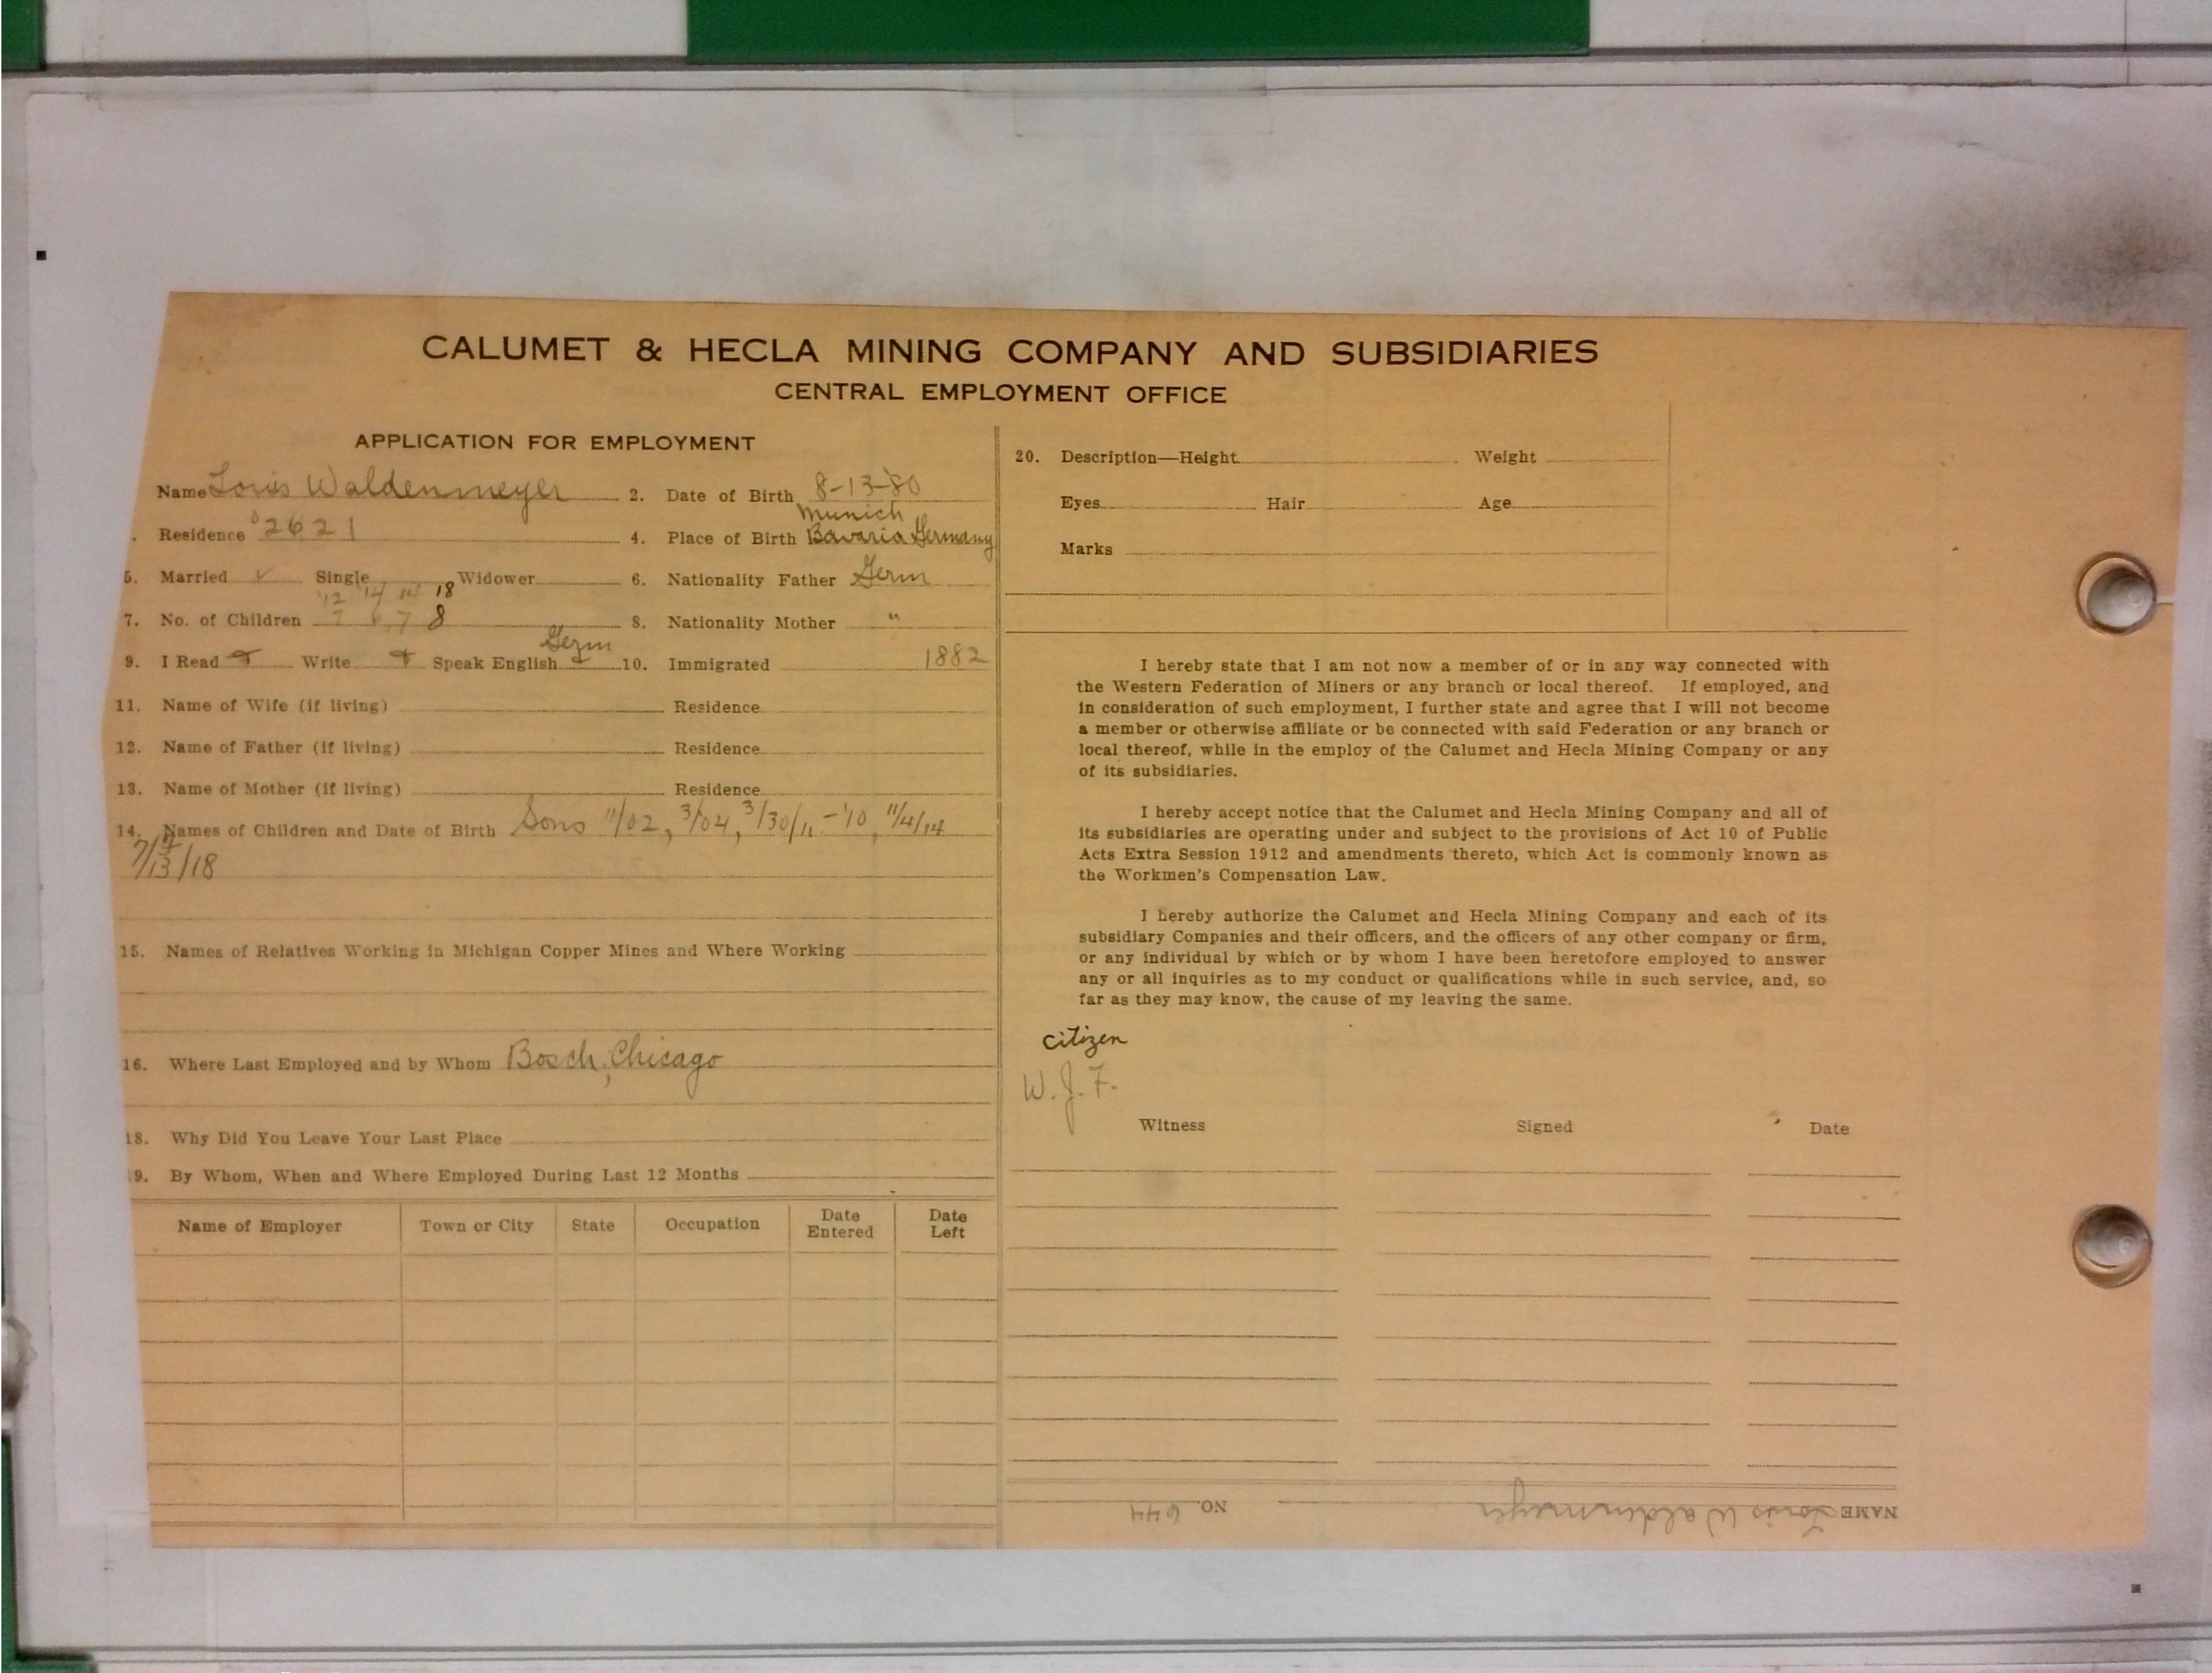 CALUMET & HECLA MINING COMPANY AND SUBSIDIARIES
CENTRAL EMPLOYMENT OFFICE
APPLICATION FOR EMPLOYMENT
Name Louis Waldenmeyer 2. Date of Birth 8-13-'80
Munich
. Residence 2621 4. Place of Birth Bavaria Germany
5. Married ✓ Single Widower 6. Nationality Father Germ
'12 '14 18
7. No. of Children 7 6, 7 8 8. Nationality Mother "
Germ
9. I Read Write Speak English 10. Immigrated 1882
11. Name of Wife (if living) Residence
12. Name of Father (if living) Residence
13. Name of Mother (if living) Residence
14. Names of Children and Date of Birth Sons 11/02, 3/04, 3/30/11 - '10, 11/4/14
7/13/18
15. Names of Relatives Working in Michigan Copper Mines and Where Working
16. Where Last Employed and by Whom Bosch, Chicago
18. Why Did You Leave Your Last Place
9. By Whom, When and Where Employed During Last 12 Months
Name of Employer Town or City State Occupation Date Entered Date Left
20. Description—Height Weight
Eyes Hair Age
Marks
I hereby state that I am not now a member of or in any way connected with
the Western Federation of Miners or any branch or local thereof. If employed, and
in consideration of such employment, I further state and agree that I will not become
a member or otherwise affiliate or be connected with said Federation or any branch or
local thereof, while in the employ of the Calumet and Hecla Mining Company or any
of its subsidiaries.
I hereby accept notice that the Calumet and Hecla Mining Company and all of
its subsidiaries are operating under and subject to the provisions of Act 10 of Public
Acts Extra Session 1912 and amendments thereto, which Act is commonly known as
the Workmen's Compensation Law.
I hereby authorize the Calumet and Hecla Mining Company and each of its
subsidiary Companies and their officers, and the officers of any other company or firm,
or any individual by which or by whom I have been heretofore employed to answer
any or all inquiries as to my conduct or qualifications while in such service, and, so
far as they may know, the cause of my leaving the same.
citizen
W. J. F.
Witness Signed Date
NAME Louis Waldenmeyer NO. 644